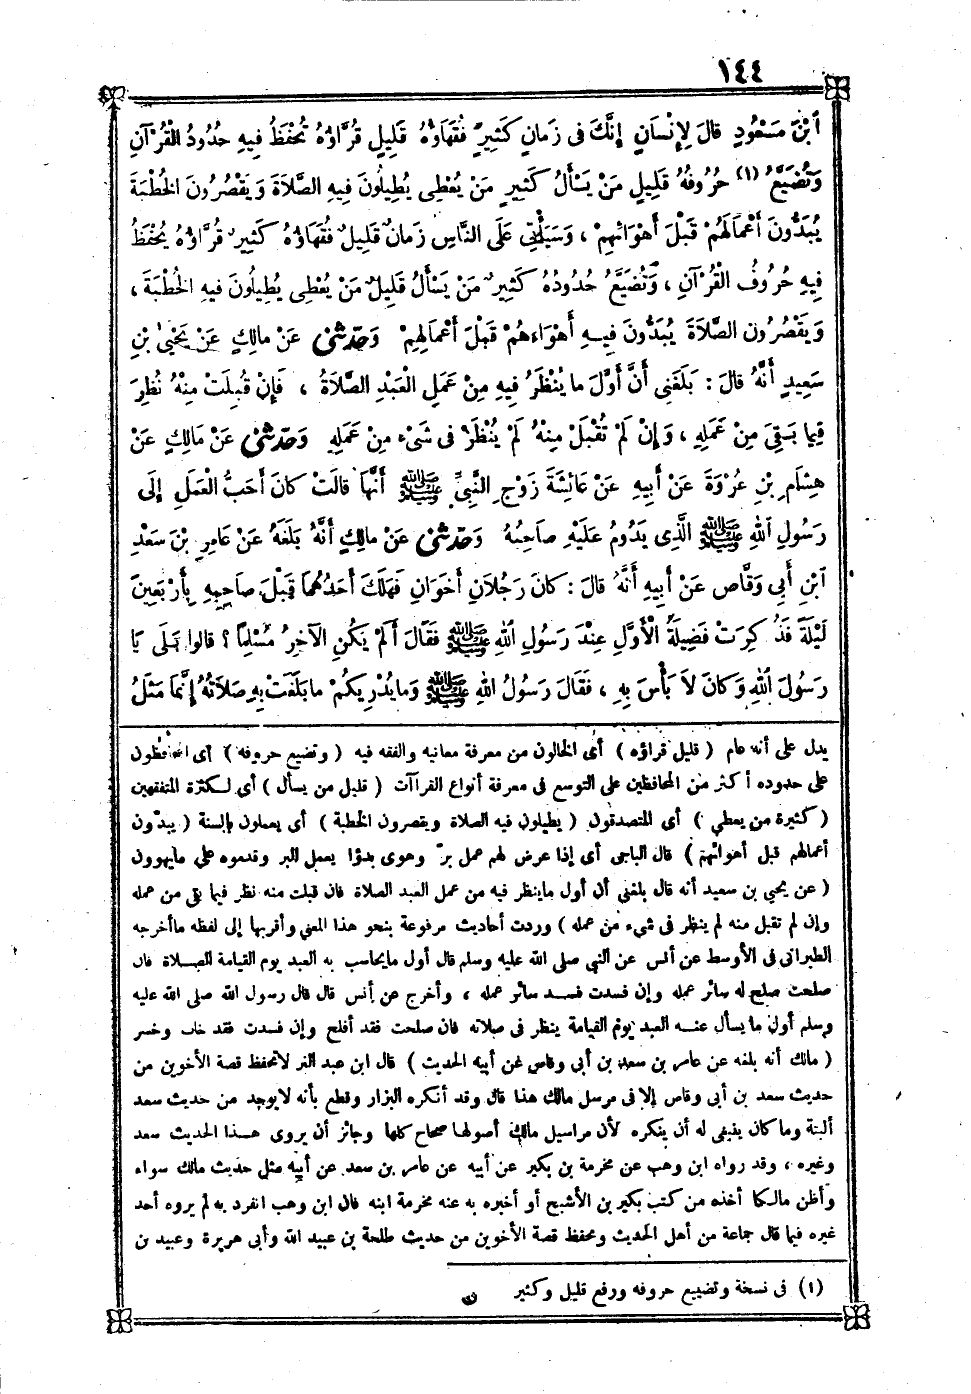 ١٤٤
ابْنَ مَسْعُودٍ قَالَ لِإِنْسَانٍ إِنَّكَ فِى زَمَانٍ كَثِيرٍ فُقَهَاؤُهُ قَلِيلٍ قُرَّاؤُهُ تُحْفَظُ فِيهِ حُدُودُ الْقُرْآنِ
وَتُضَيَّعُ (١) حُرُوفُهُ قَلِيلٍ مَنْ يَسْأَلُ كَثِيرٍ مَنْ يُعْطِى يُطِيلُونَ فِيهِ الصَّلَاةَ وَيَقْصُرُونَ الْخُطْبَةَ
يُبَدُّونَ أَعْمَالَهُمْ قَبْلَ أَهْوَائِهِمْ ، وَسَيَأْتِى عَلَى النَّاسِ زَمَانٌ قَلِيلٌ فُقَهَاؤُهُ كَثِيرٌ قُرَّاؤُهُ يُحْفَظُ
فِيهِ حُرُوفُ الْقُرْآنِ ، وَتُضَيَّعُ حُدُودُهُ كَثِيرٌ مَنْ يَسْأَلُ قَلِيلٌ مَنْ يُعْطِى يُطِيلُونَ فِيهِ الْخُطْبَةَ ،
وَيَقْصُرُونَ الصَّلَاةَ يُبَدُّونَ فِيهِ أَهْوَاءَهُمْ قَبْلَ أَعْمَالِهِمْ وَحَدَّثَنِى عَنْ مَالِكٍ عَنْ يَحْيَى بْنِ
سَعِيدٍ أَنَّهُ قَالَ : بَلَغَنِى أَنَّ أَوَّلَ مَا يُنْظَرُ فِيهِ مِنْ عَمَلِ الْعَبْدِ الصَّلَاةُ ، فَإِنْ قُبِلَتْ مِنْهُ نُظِرَ
فِيمَا بَقِىَ مِنْ عَمَلِهِ ، وَإِنْ لَمْ تُقْبَلْ مِنْهُ لَمْ يُنْظَرْ فِى شَىْءٍ مِنْ عَمَلِهِ وَحَدَّثَنِى عَنْ مَالِكٍ عَنْ
هِشَامِ بْنِ عُرْوَةَ عَنْ أَبِيهِ عَنْ عَائِشَةَ زَوْجِ النَّبِىِّ ﷺ أَنَّهَا قَالَتْ كَانَ أَحَبُّ الْعَمَلِ إِلَى
رَسُولِ اللهِ ﷺ الَّذِى يَدُومُ عَلَيْهِ صَاحِبُهُ وَحَدَّثَنِى عَنْ مَالِكٍ أَنَّهُ بَلَغَهُ عَنْ عَامِرِ بْنِ سَعْدِ
ابْنِ أَبِى وَقَّاصٍ عَنْ أَبِيهِ أَنَّهُ قَالَ : كَانَ رَجُلَانِ أَخَوَانِ فَهَلَكَ أَحَدُهُمَا قَبْلَ صَاحِبِهِ بِأَرْبَعِينَ
لَيْلَةً فَذُكِرَتْ فَضِيلَةُ الْأَوَّلِ عِنْدَ رَسُولِ اللهِ ﷺ فَقَالَ أَلَمْ يَكُنِ الْآخِرُ مُسْلِمًا ؟ قَالُوا بَلَى يَا
رَسُولَ اللهِ وَكَانَ لَا بَأْسَ بِهِ ، فَقَالَ رَسُولُ اللهِ ﷺ وَمَا يُدْرِيكُمْ مَا بَلَغَتْ بِهِ صَلَاتُهُ إِنَّمَا مَثَلُ
يدل على أنه عام ( قليل قراؤه ) أى الخالون من معرفة معانيه والفقه فيه ( وتضيع حروفه ) أى المحافظون
على حدوده أكثر من المحافظين على التوسع فى معرفة أنواع القراآت ( قليل من يسأل ) أى لكثرة المتفقهين
( كثيرة من يعطي ) أى المتصدقون ( يطيلون فيه الصلاة ويقصرون الخطبة ) أى يعملون بالسنة ( يبدّون
أعمالهم قبل أهوائهم ) قال الباجى أى إذا عرض لهم عمل برّ وهوى بدؤا بعمل البر وقدموه على مايهوون
( عن يحيى بن سعيد أنه قال بلغنى أن أول ماينظر فيه من عمل العبد الصلاة فان قبلت منه نظر فيما بقى من عمله
وإن لم تقبل منه لم ينظر فى شيء من عمله ) وردت أحاديث مرفوعة بنحو هذا المعنى وأقربها إلى لفظه ماأخرجه
الطبرانى فى الأوسط عن أنس عن النبي صلى الله عليه وسلم قال أول مايحاسب به العبد يوم القيامة الصلاة فان
صلحت صلح له سائر عمله وإن فسدت فسد سائر عمله ، وأخرج عن أنس قال قال رسول الله صلى الله عليه
وسلم أول ما يسأل عنه العبد يوم القيامة ينظر فى صلاته فان صلحت فقد أفلح وإن فسدت فقد خاب وخسر
( مالك أنه بلغه عن عامر بن سعد بن أبى وقاص عن أبيه الحديث ) قال ابن عبد البر لاتحفظ قصة الأخوين من
حديث سعد بن أبى وقاص إلا فى مرسل مالك هذا قال وقد أنكره البزار وقطع بأنه لايوجد من حديث سعد
ألبتة وما كان ينبغى له أن ينكره لأن مراسيل مالك أصولها صحاح كلها وجائز أن يروى هذا الحديث سعد
وغيره ، وقد رواه ابن وهب عن مخرمة بن بكير عن أبيه عن عامر بن سعد عن أبيه مثل حديث مالك سواء
وأظن مالكا أخذه من كتب بكير بن الأشج أو أخبره به عنه مخرمة ابنه قال ابن وهب انفرد به لم يروه أحد
غيره فيما قال جماعة من أهل الحديث وتحفظ قصة الأخوين من حديث طلحة بن عبيد الله وأبى هريرة وعبيد بن
(١) فى نسخة وتضييع حروفه ورفع قليل وكثير